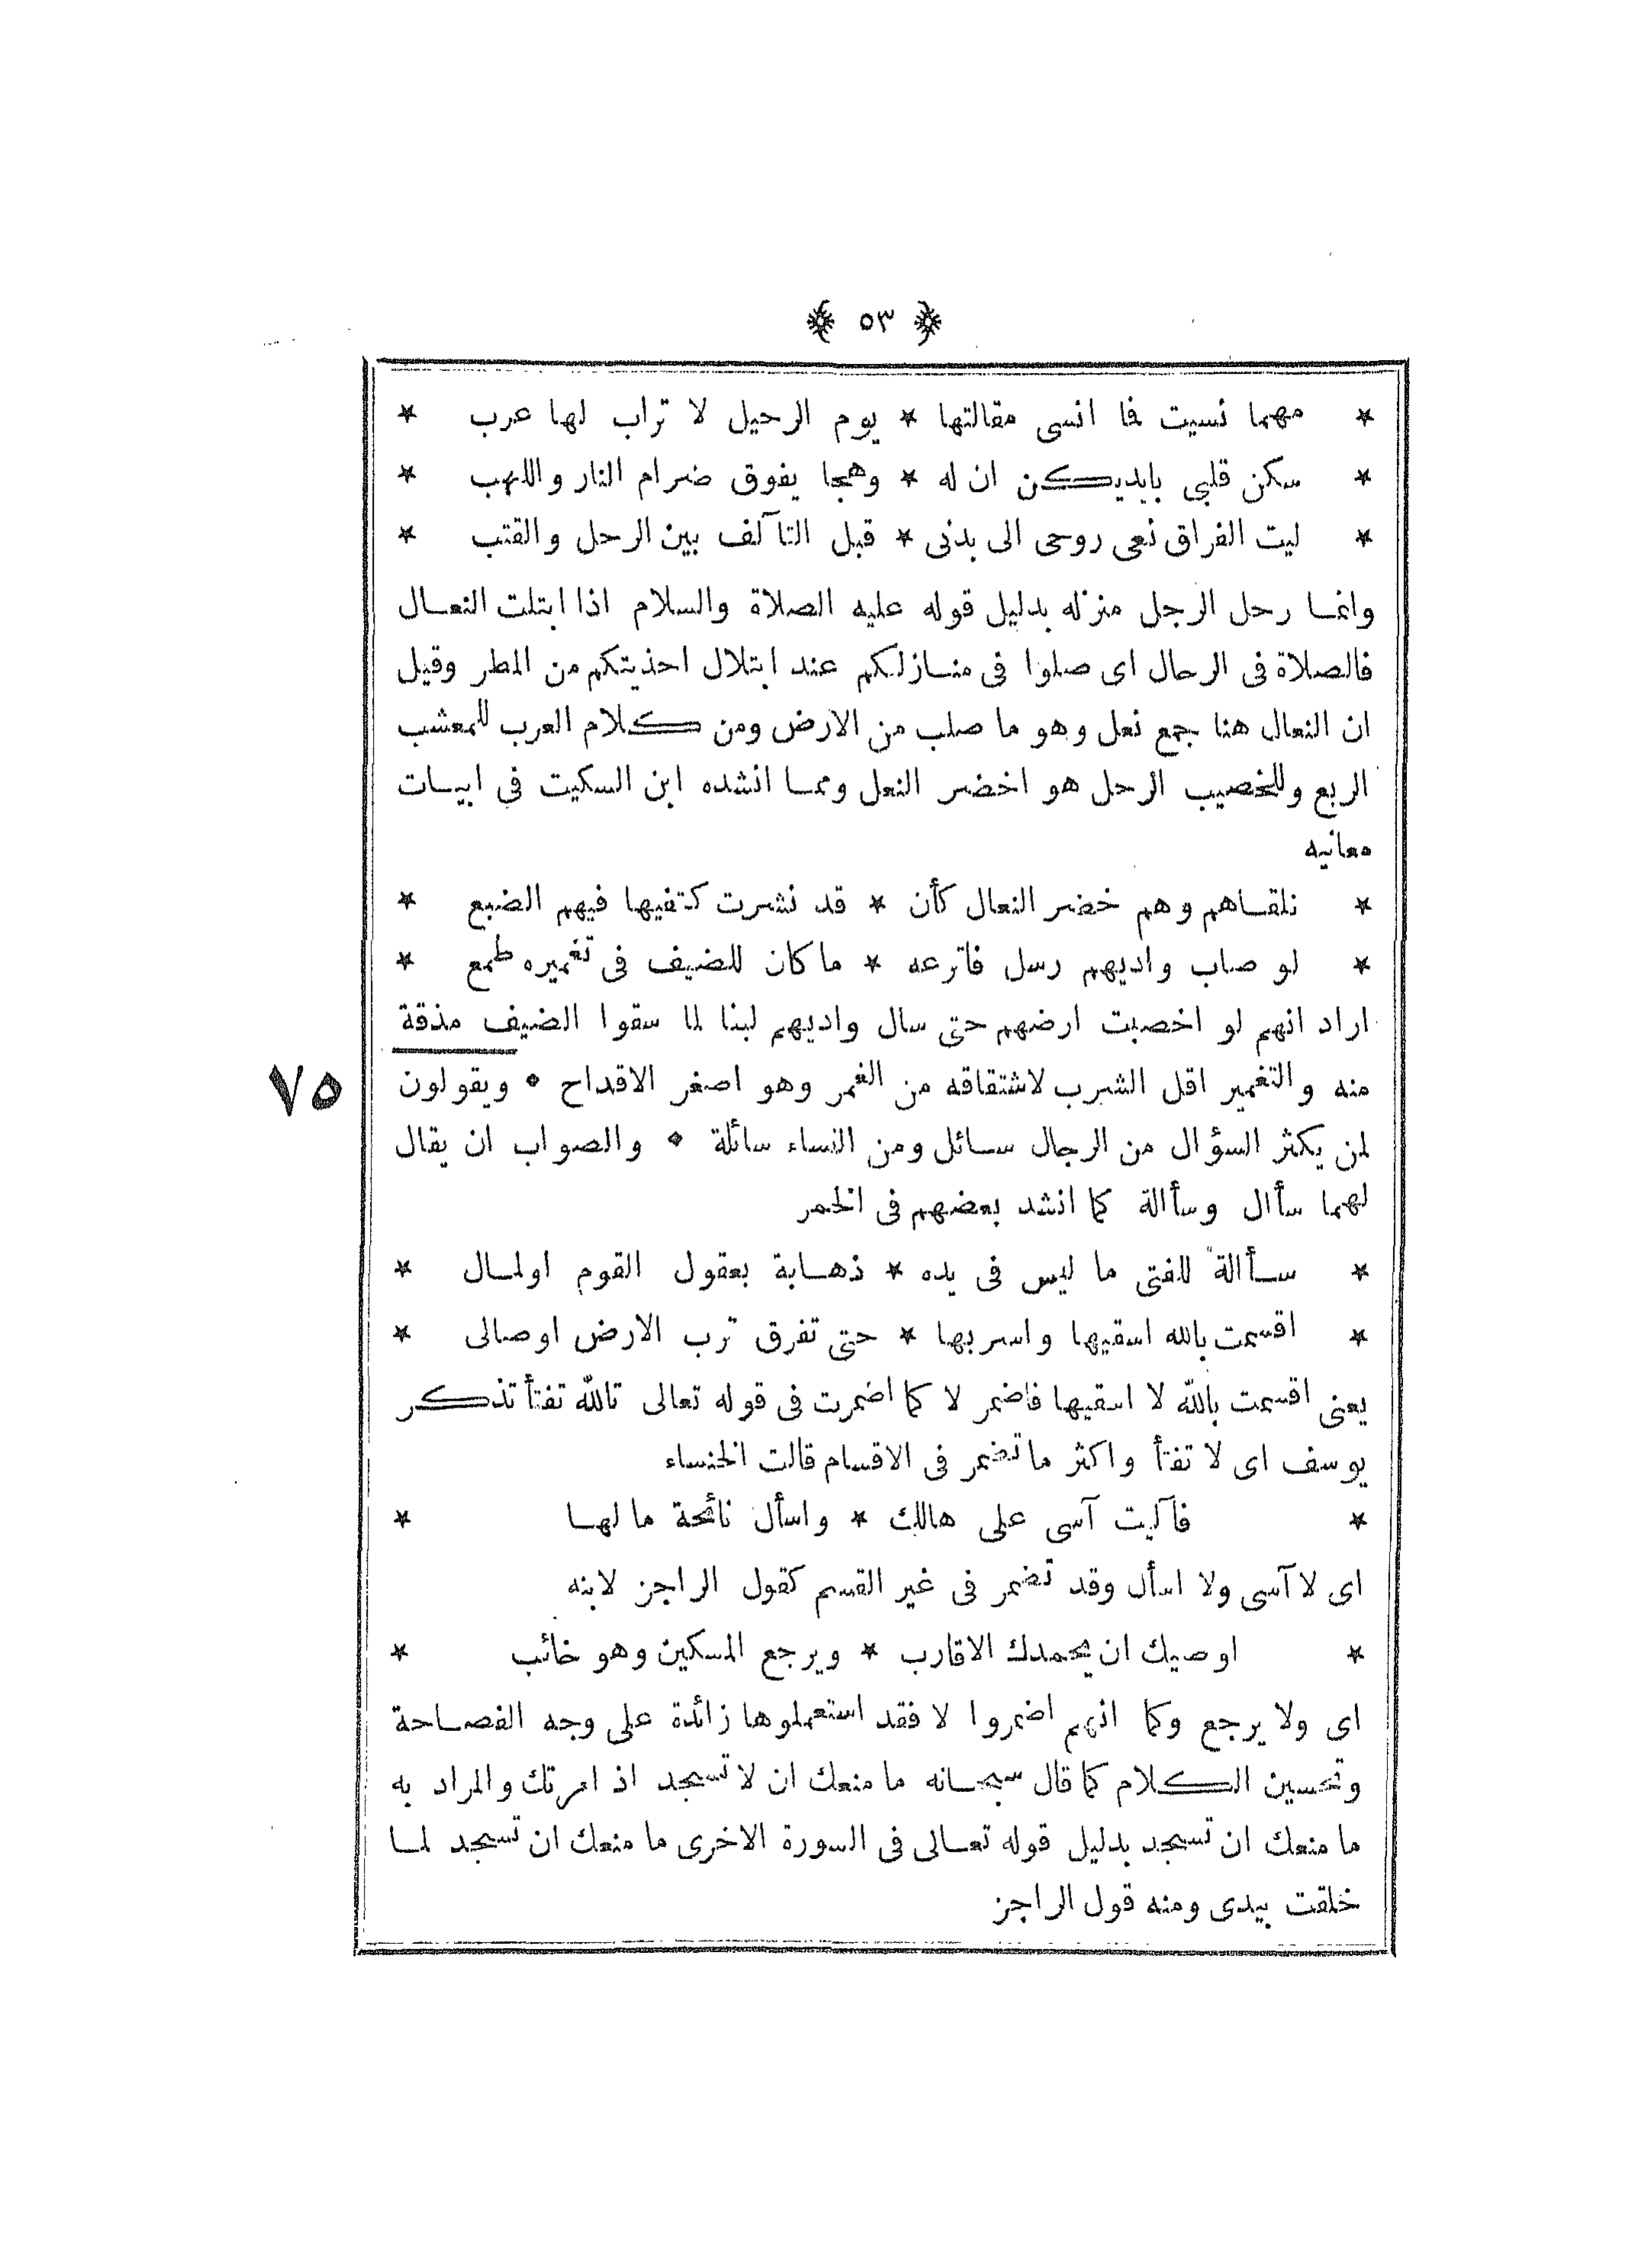 ﴿ ٥٣ ﴾
* مهما نسيت فما انسى مقالتها * يوم الرحيل لا تراب لها عرب *
* سكن قلبى بايديكن ان له * وهجا يفوق ضرام النار واللهب *
* ليت الفراق نعى روحى الى بدنى * قبل التآلف بين الرحل والقتب *
وانما رحل الرجل منزله بدليل قوله عليه الصلاة والسلام اذا ابتلت النعال
فالصلاة فى الرحال اى صلوا فى منازلكم عند ابتلال احذيتكم من المطر وقيل
ان النعال هنا جمع نعل وهو ما صلب من الارض ومن كلام العرب للمعشب
الربع وللخصيب الرحل هو اخضر النعل ومما انشده ابن السكيت فى ابيات
معانيه
* نلقاهم وهم خضر النعال كأن * قد نشرت كتفيها فيهم الضبع *
* لو صاب واديهم رسل فاترعه * ما كان للضيف فى تغميره طمع *
اراد انهم لو اخصبت ارضهم حتى سال واديهم لبنا لما سقوا الضيف مذقة
٧٥ منه والتغمير اقل الشرب لاشتقاقه من الغمر وهو اصغر الاقداح * ويقولون
لمن يكثر السؤال من الرجال سائل ومن النساء سائلة * والصواب ان يقال
لهما سأال وسأالة كما انشد بعضهم فى الخمر
* سأالة للفتى ما ليس فى يده * ذهابة بعقول القوم اولمال *
* اقسمت بالله اسقيها واسربها * حتى تفرق ترب الارض اوصالى *
يعنى اقسمت بالله لا اسقيها فاضمر لا كما اضمرت فى قوله تعالى تالله تفتأ تذكر
يوسف اى لا تفتأ واكثر ما تضمر فى الاقسام قالت الخنساء
* فآليت آسى على هالك * واسأل نائحة ما لها *
اى لا آسى ولا اسأل وقد تضمر فى غير القسم كقول الراجز لابنه
* اوصيك ان يحمدك الاقارب * ويرجع المسكين وهو خائب *
اى ولا يرجع وكما انهم اضمروا لا فقد استعملوها زائدة على وجه الفصاحة
وتحسين الكلام كما قال سبحانه ما منعك ان لا تسجد اذ امرتك والمراد به
ما منعك ان تسجد بدليل قوله تعالى فى السورة الاخرى ما منعك ان تسجد لما
خلقت بيدى ومنه قول الراجز